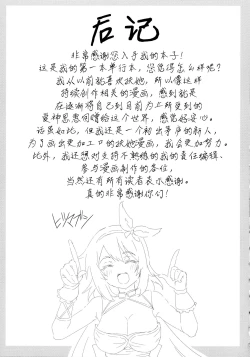 后记
非常感谢您入手我的本子！
这是我的第一本单行本，您觉得怎么样呢？
我从以前就喜欢扶她，所以像这样
持续创作相关的漫画，感到就是
在逐渐将自己到目前为止所受到的
爱神恩惠回馈给这个世界，感觉好安心。
话虽如此，但我还是一个初出茅庐的新人，
为了画出更加工口的扶她漫画，我会更加努力。
此外，我还想对支持不熟练的我的责任编辑、
参与漫画制作的各位，
当然还有所有读者表示感谢。
真的非常感谢你们！